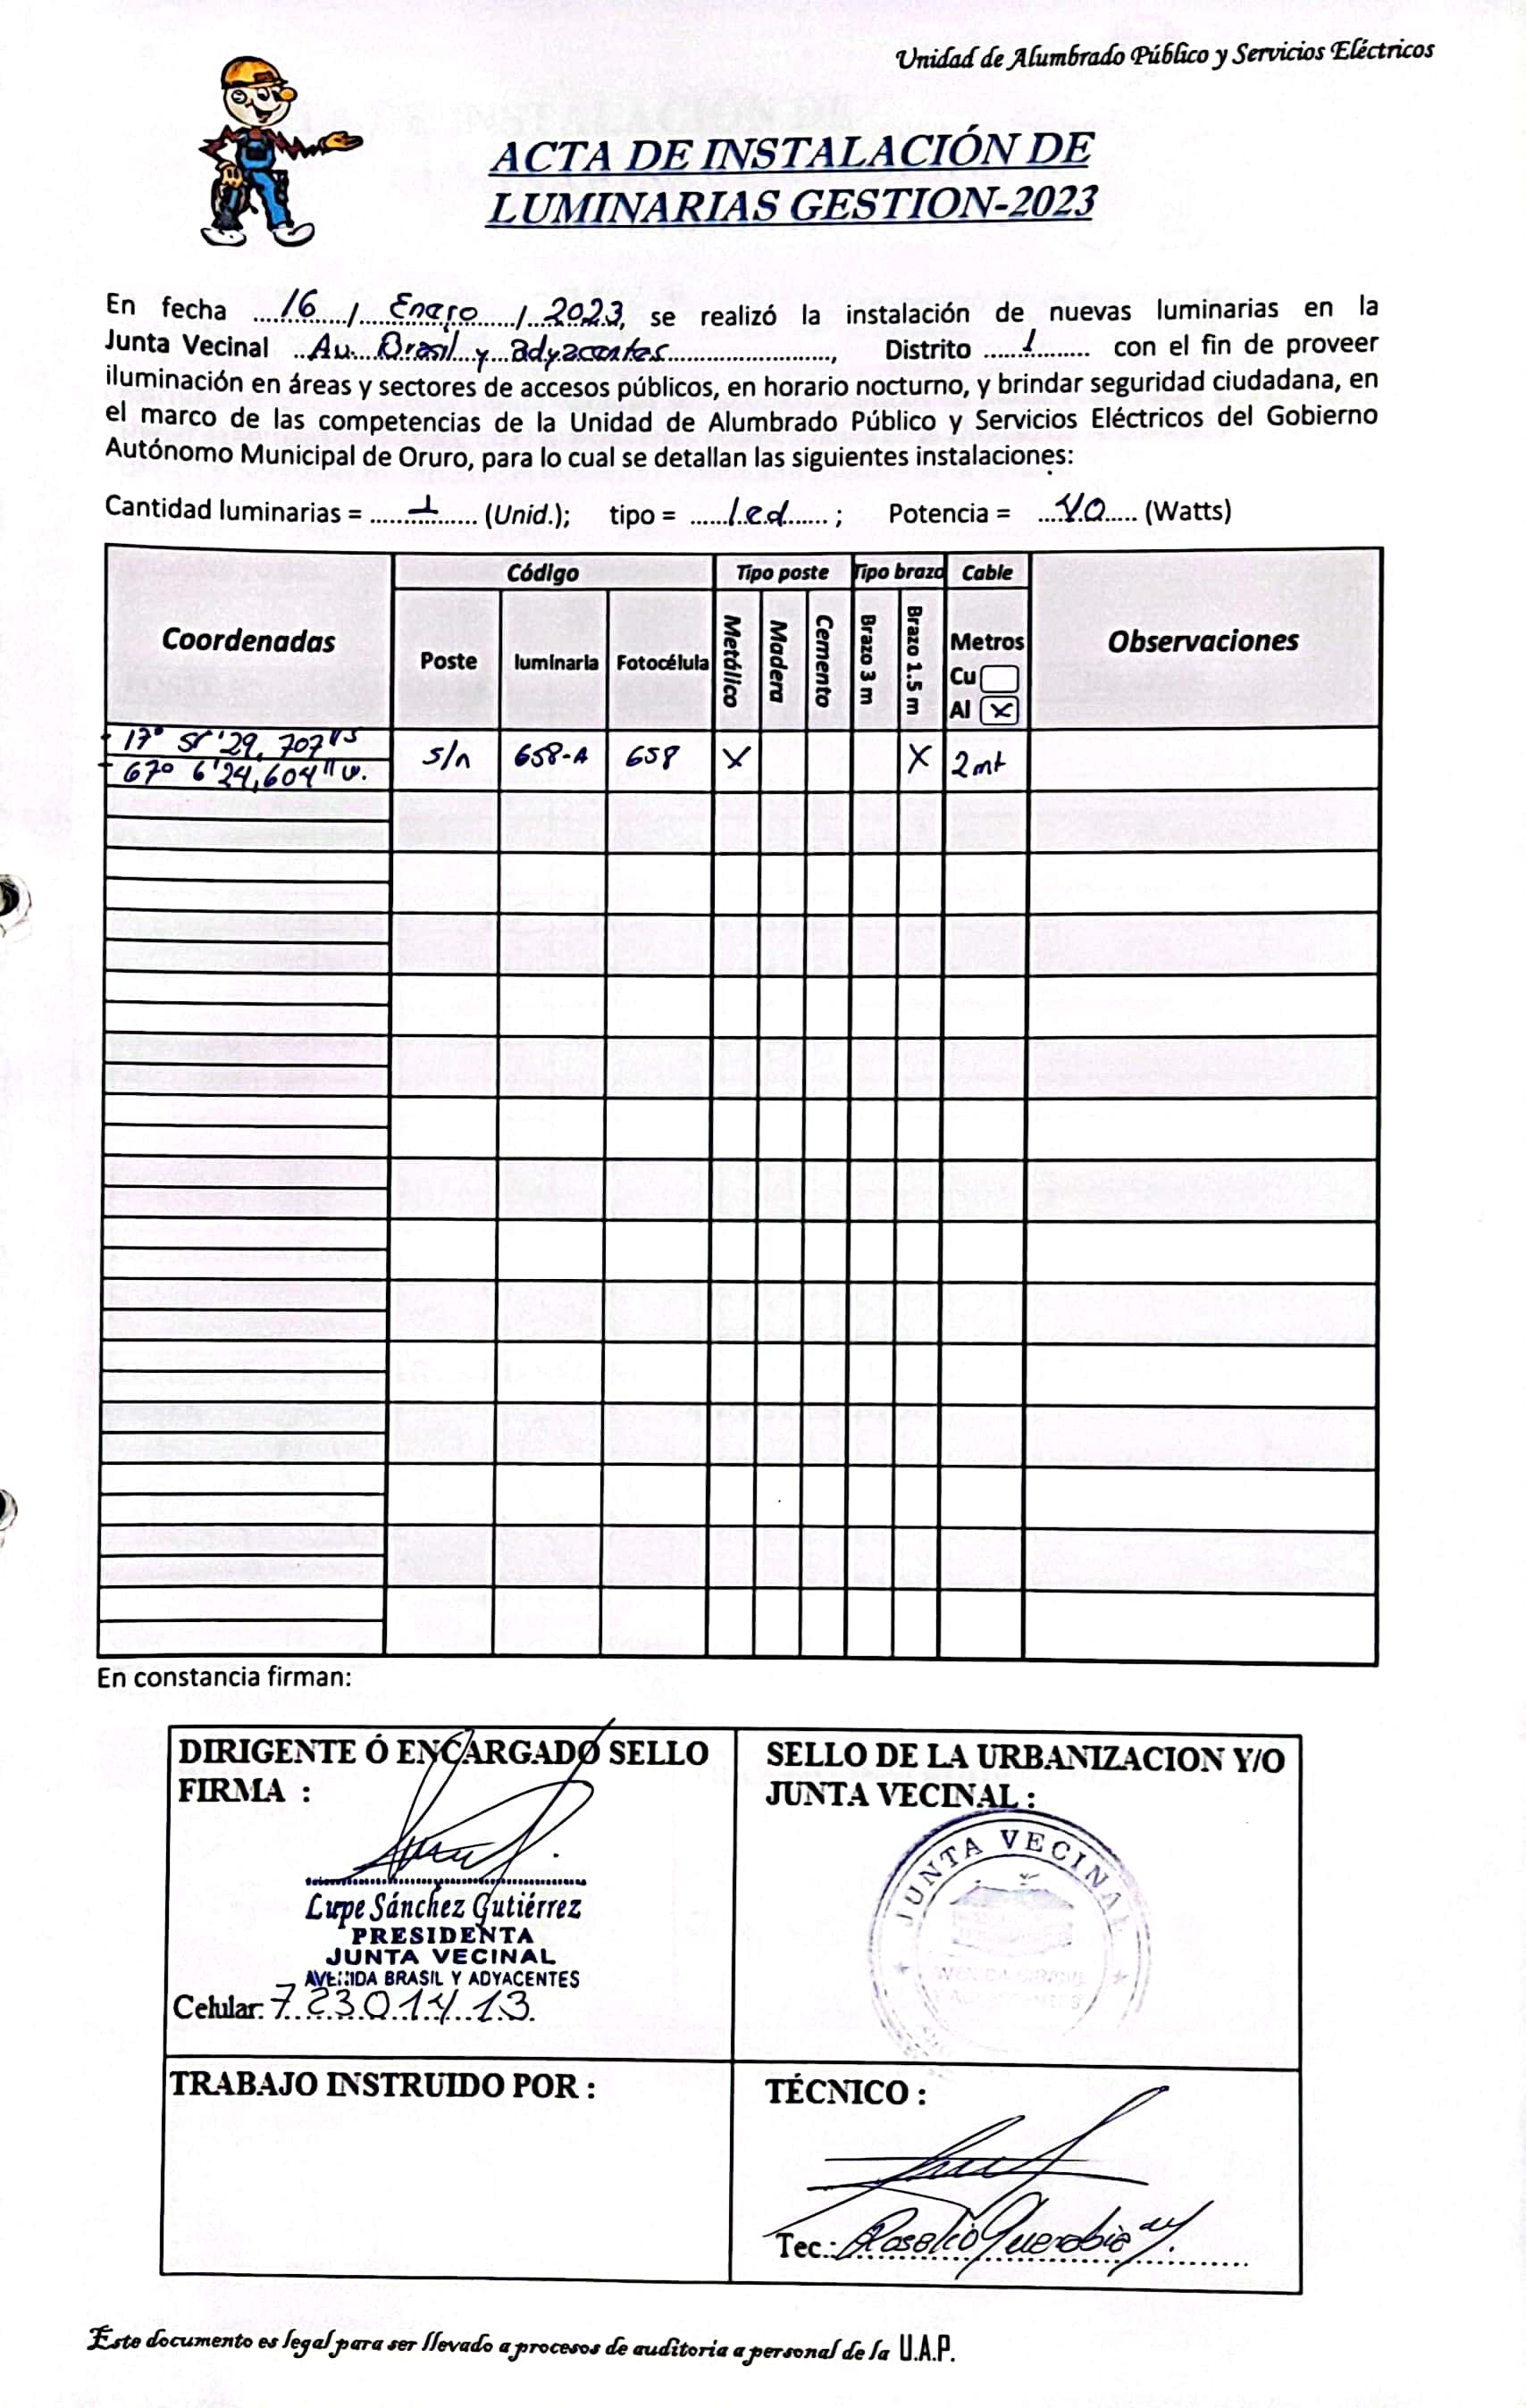 Unidad de Alumbrado Público y Servicios Eléctricos
ACTA DE INSTALACIÓN DE
LUMINARIAS GESTION-2023
En fecha 16 / Enero / 2023, se realizó la instalación de nuevas luminarias en la
Junta Vecinal Av. Brasil y adyacentes, Distrito 1 con el fin de proveer
iluminación en áreas y sectores de accesos públicos, en horario nocturno, y brindar seguridad ciudadana, en
el marco de las competencias de la Unidad de Alumbrado Público y Servicios Eléctricos del Gobierno
Autónomo Municipal de Oruro, para lo cual se detallan las siguientes instalaciones:
Cantidad luminarias = 1 (Unid.); tipo = led ; Potencia = 40 (Watts)
Coordenadas Código Tipo poste Tipo brazo Cable Observaciones
Poste luminaria Fotocélula Metálico Madera Cemento Brazo 3 m Brazo 1.5 m Metros
Cu
Al X
- 17° 58'29,707"S s/n 658-A 658 X X 2mt
- 67° 6'24,604" W.
En constancia firman:
DIRIGENTE Ó ENCARGADO SELLO
FIRMA :
Lupe Sánchez Gutiérrez
PRESIDENTA
JUNTA VECINAL
AVENIDA BRASIL Y ADYACENTES
Celular: 72301413
SELLO DE LA URBANIZACION Y/O
JUNTA VECINAL :
JUNTA VECINAL
AVENIDA BRASIL
Y ADYACENTES
TRABAJO INSTRUIDO POR :
TÉCNICO :
Tec.:
Este documento es legal para ser llevado a procesos de auditoria a personal de la U.A.P.